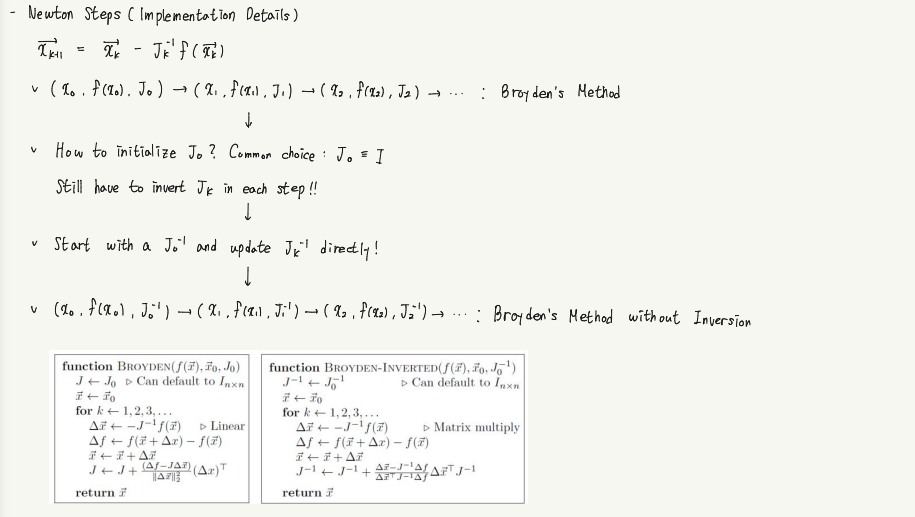 - Newton Steps (Implementation Details)
x⃗ₖ₊₁ = x⃗ₖ - Jₖ⁻¹ f(x⃗ₖ)
v (x₀, f(x₀), J₀) → (x₁, f(x₁), J₁) → (x₂, f(x₂), J₂) → ⋯ : Broyden's Method
↓
v How to initialize J₀? Common choice : J₀ ≡ I
Still have to invert Jₖ in each step!!
↓
v Start with a J₀⁻¹ and update Jₖ⁻¹ directly!
↓
v (x₀, f(x₀), J₀⁻¹) → (x₁, f(x₁), J₁⁻¹) → (x₂, f(x₂), J₂⁻¹) → ⋯ : Broyden's Method without Inversion
function BROYDEN(f(x⃗), x⃗₀, J₀)
J ← J₀ ▷ Can default to Iₙₓₙ
x⃗ ← x⃗₀
for k ← 1, 2, 3, ...
Δx⃗ ← -J⁻¹f(x⃗) ▷ Linear
Δf ← f(x⃗ + Δx) - f(x⃗)
x⃗ ← x⃗ + Δx⃗
J ← J + (Δf-JΔx⃗)/‖Δx⃗‖₂² (Δx)⊤
return x⃗
function BROYDEN-INVERTED(f(x⃗), x⃗₀, J₀⁻¹)
J⁻¹ ← J₀⁻¹ ▷ Can default to Iₙₓₙ
x⃗ ← x⃗₀
for k ← 1, 2, 3, ...
Δx⃗ ← -J⁻¹f(x⃗) ▷ Matrix multiply
Δf ← f(x⃗ + Δx) - f(x⃗)
x⃗ ← x⃗ + Δx⃗
J⁻¹ ← J⁻¹ + (Δx⃗-J⁻¹Δf)/(Δx⃗⊤J⁻¹Δf) Δx⃗⊤J⁻¹
return x⃗